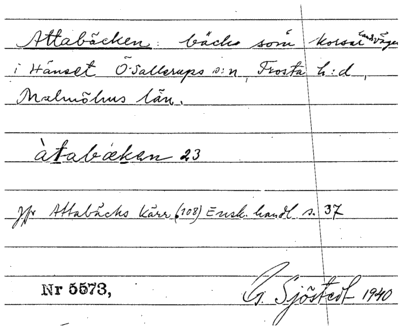 Attabäcken: bäck som korsar landsvägen
i Hänset Ö. Sallerups s:n, Frosta h:d,
Malmöhus län.
àtabækan 23
Jfr Attabäcks kärr (108) Ensk. handl. s. 37
Nr 5573,
G. Sjöstedt 1940